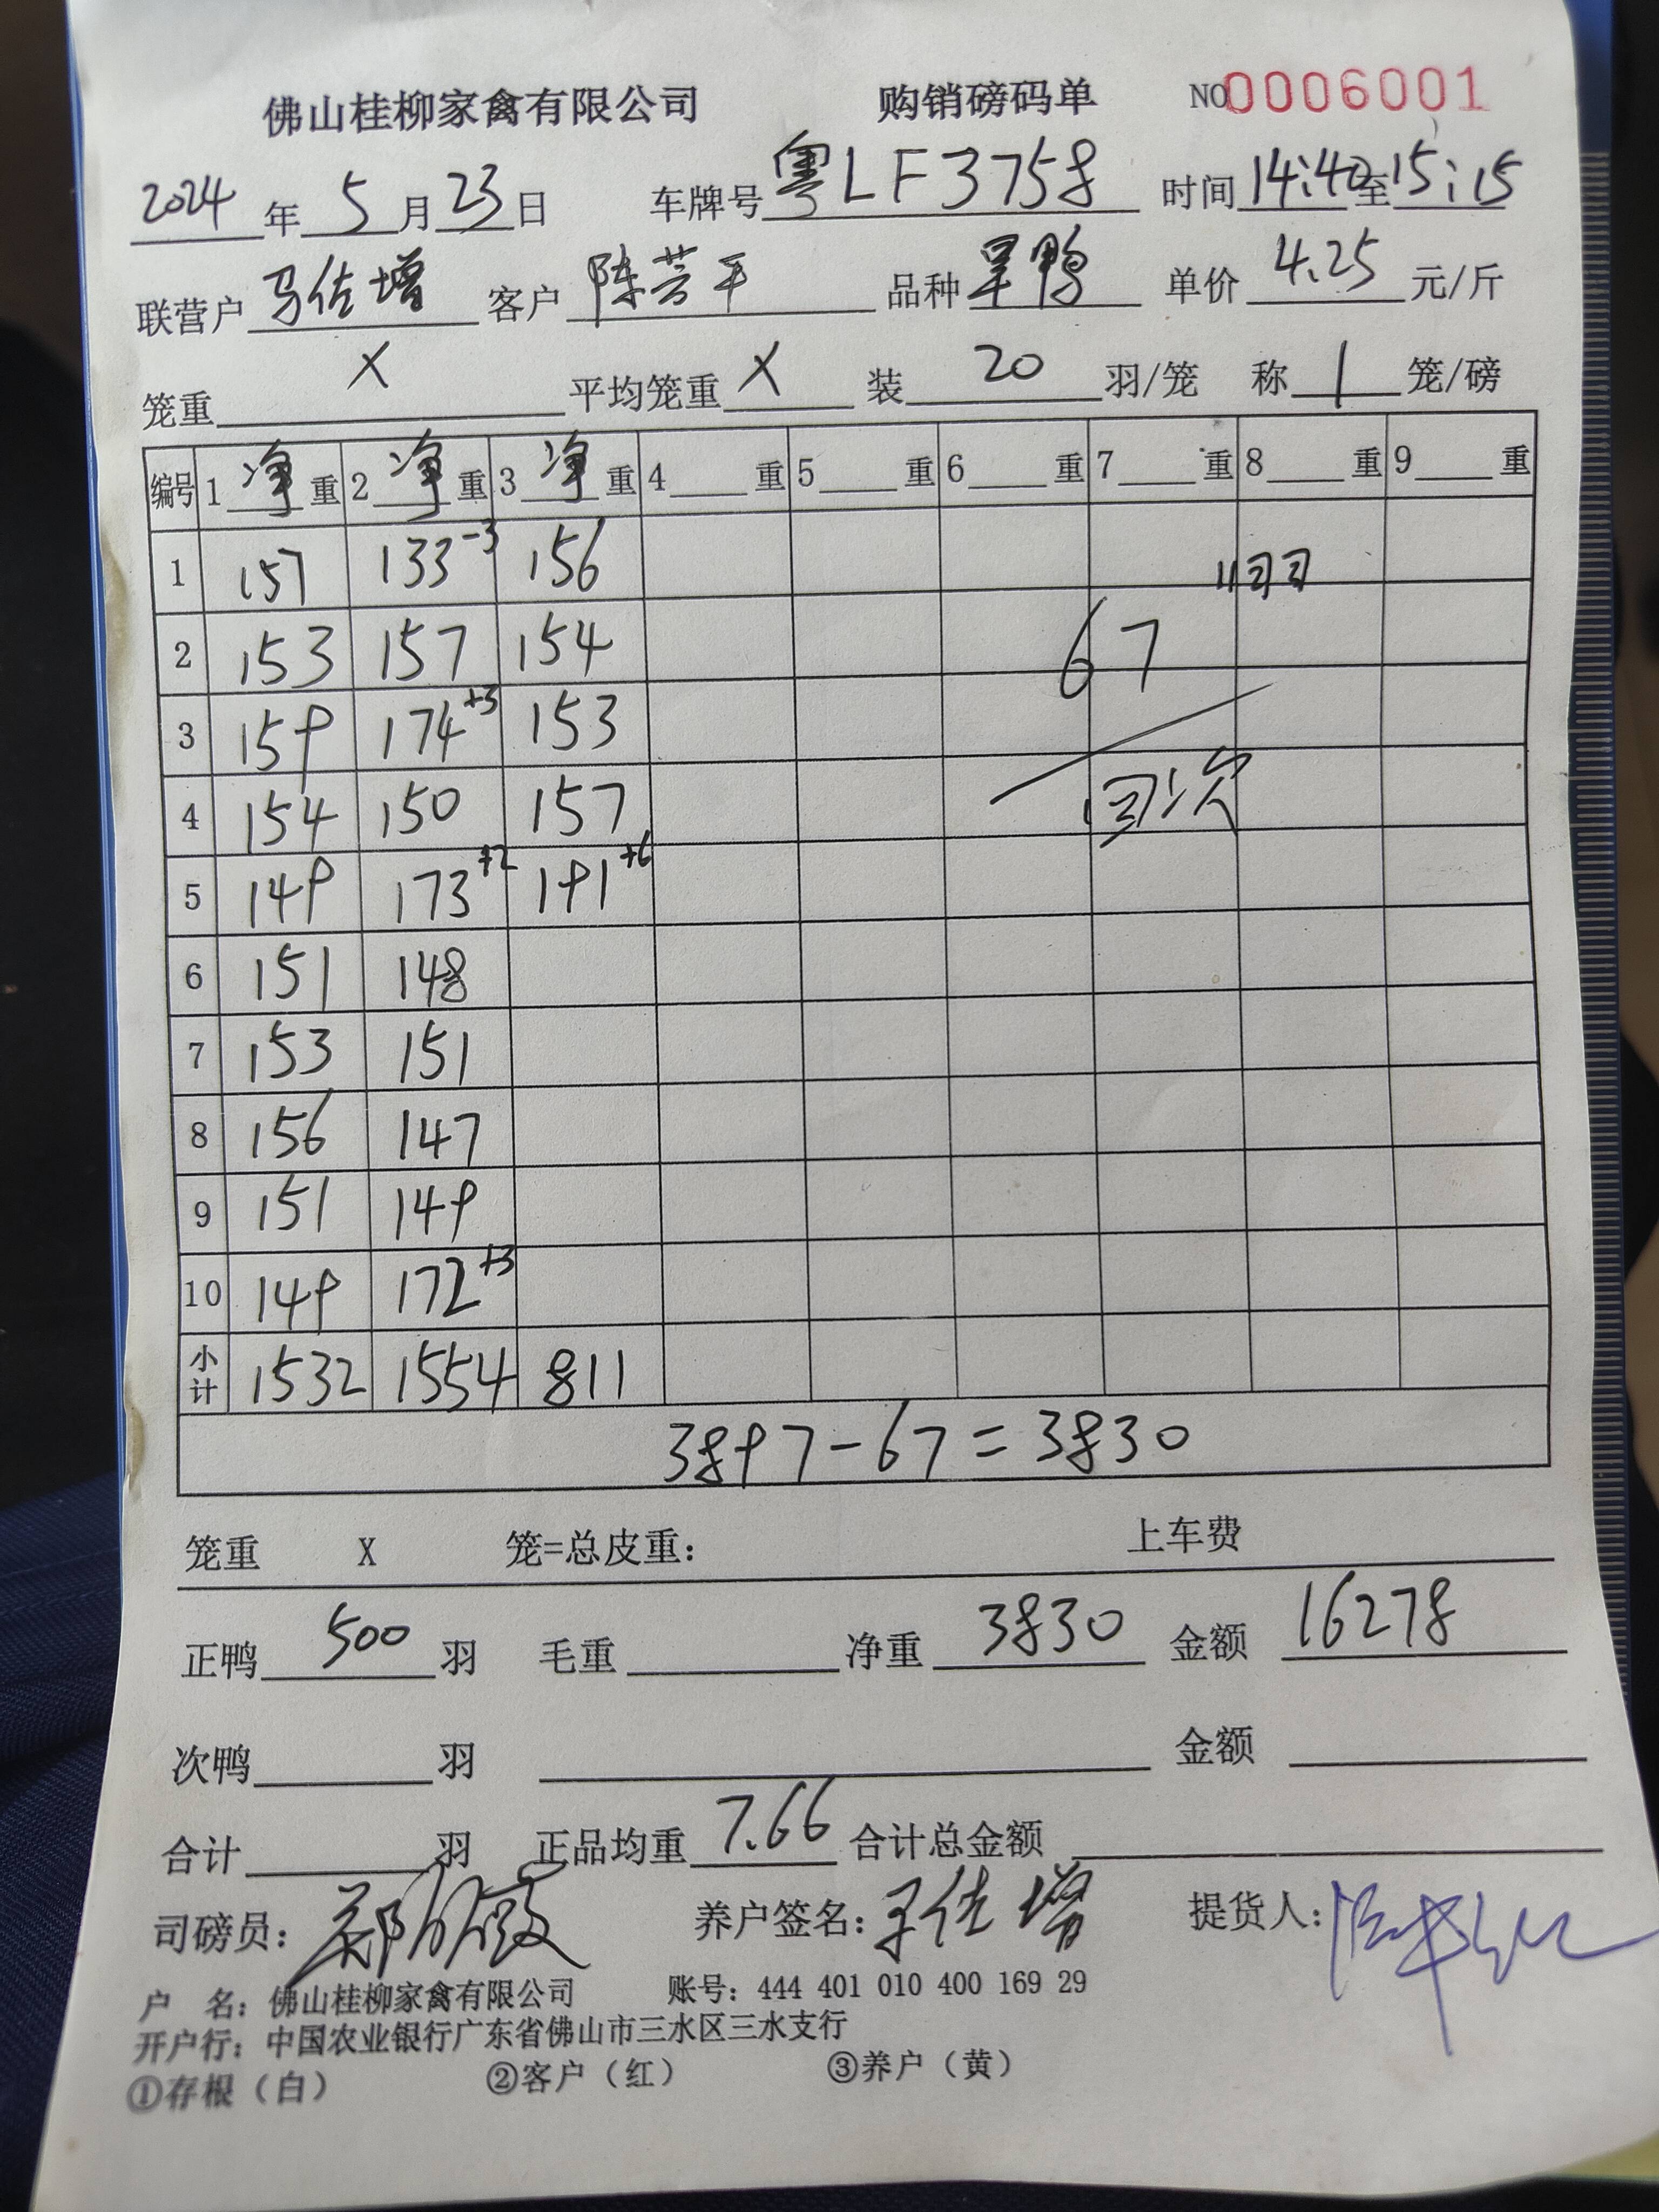 佛山桂柳家禽有限公司 购销磅码单 NO 0006001
2024 年 5 月 23 日 车牌号 粤LF3758 时间 14:40 至 15:15
联营户 马佐增 客户 陈芳平 品种 旱鸭 单价 4.25 元/斤
笼重 X 平均笼重 X 装 20 羽/笼 称 1 笼/磅
编号 1 净 重 2 净 重 3 净 重 4 重 5 重 6 重 7 重 8 重 9 重
1 157 133-3 156
2 153 157 154 67
3 159 174+3 153
4 154 150 157 回次
5 149 173+2 191+6
6 151 148
7 153 151
8 156 147
9 151 149
10 149 172+3
小计 1532 1554 811
3897-67=3830
笼重 X 笼=总皮重: 上车费
正鸭 500 羽 毛重 净重 3830 金额 16278
次鸭 羽 金额
合计 羽 正品均重 7.66 合计总金额
司磅员: 养户签名: 马佐增 提货人:
户 名: 佛山桂柳家禽有限公司 账号: 444 401 010 400 169 29
开户行: 中国农业银行广东省佛山市三水区三水支行
①存根（白） ②客户（红） ③养户（黄）